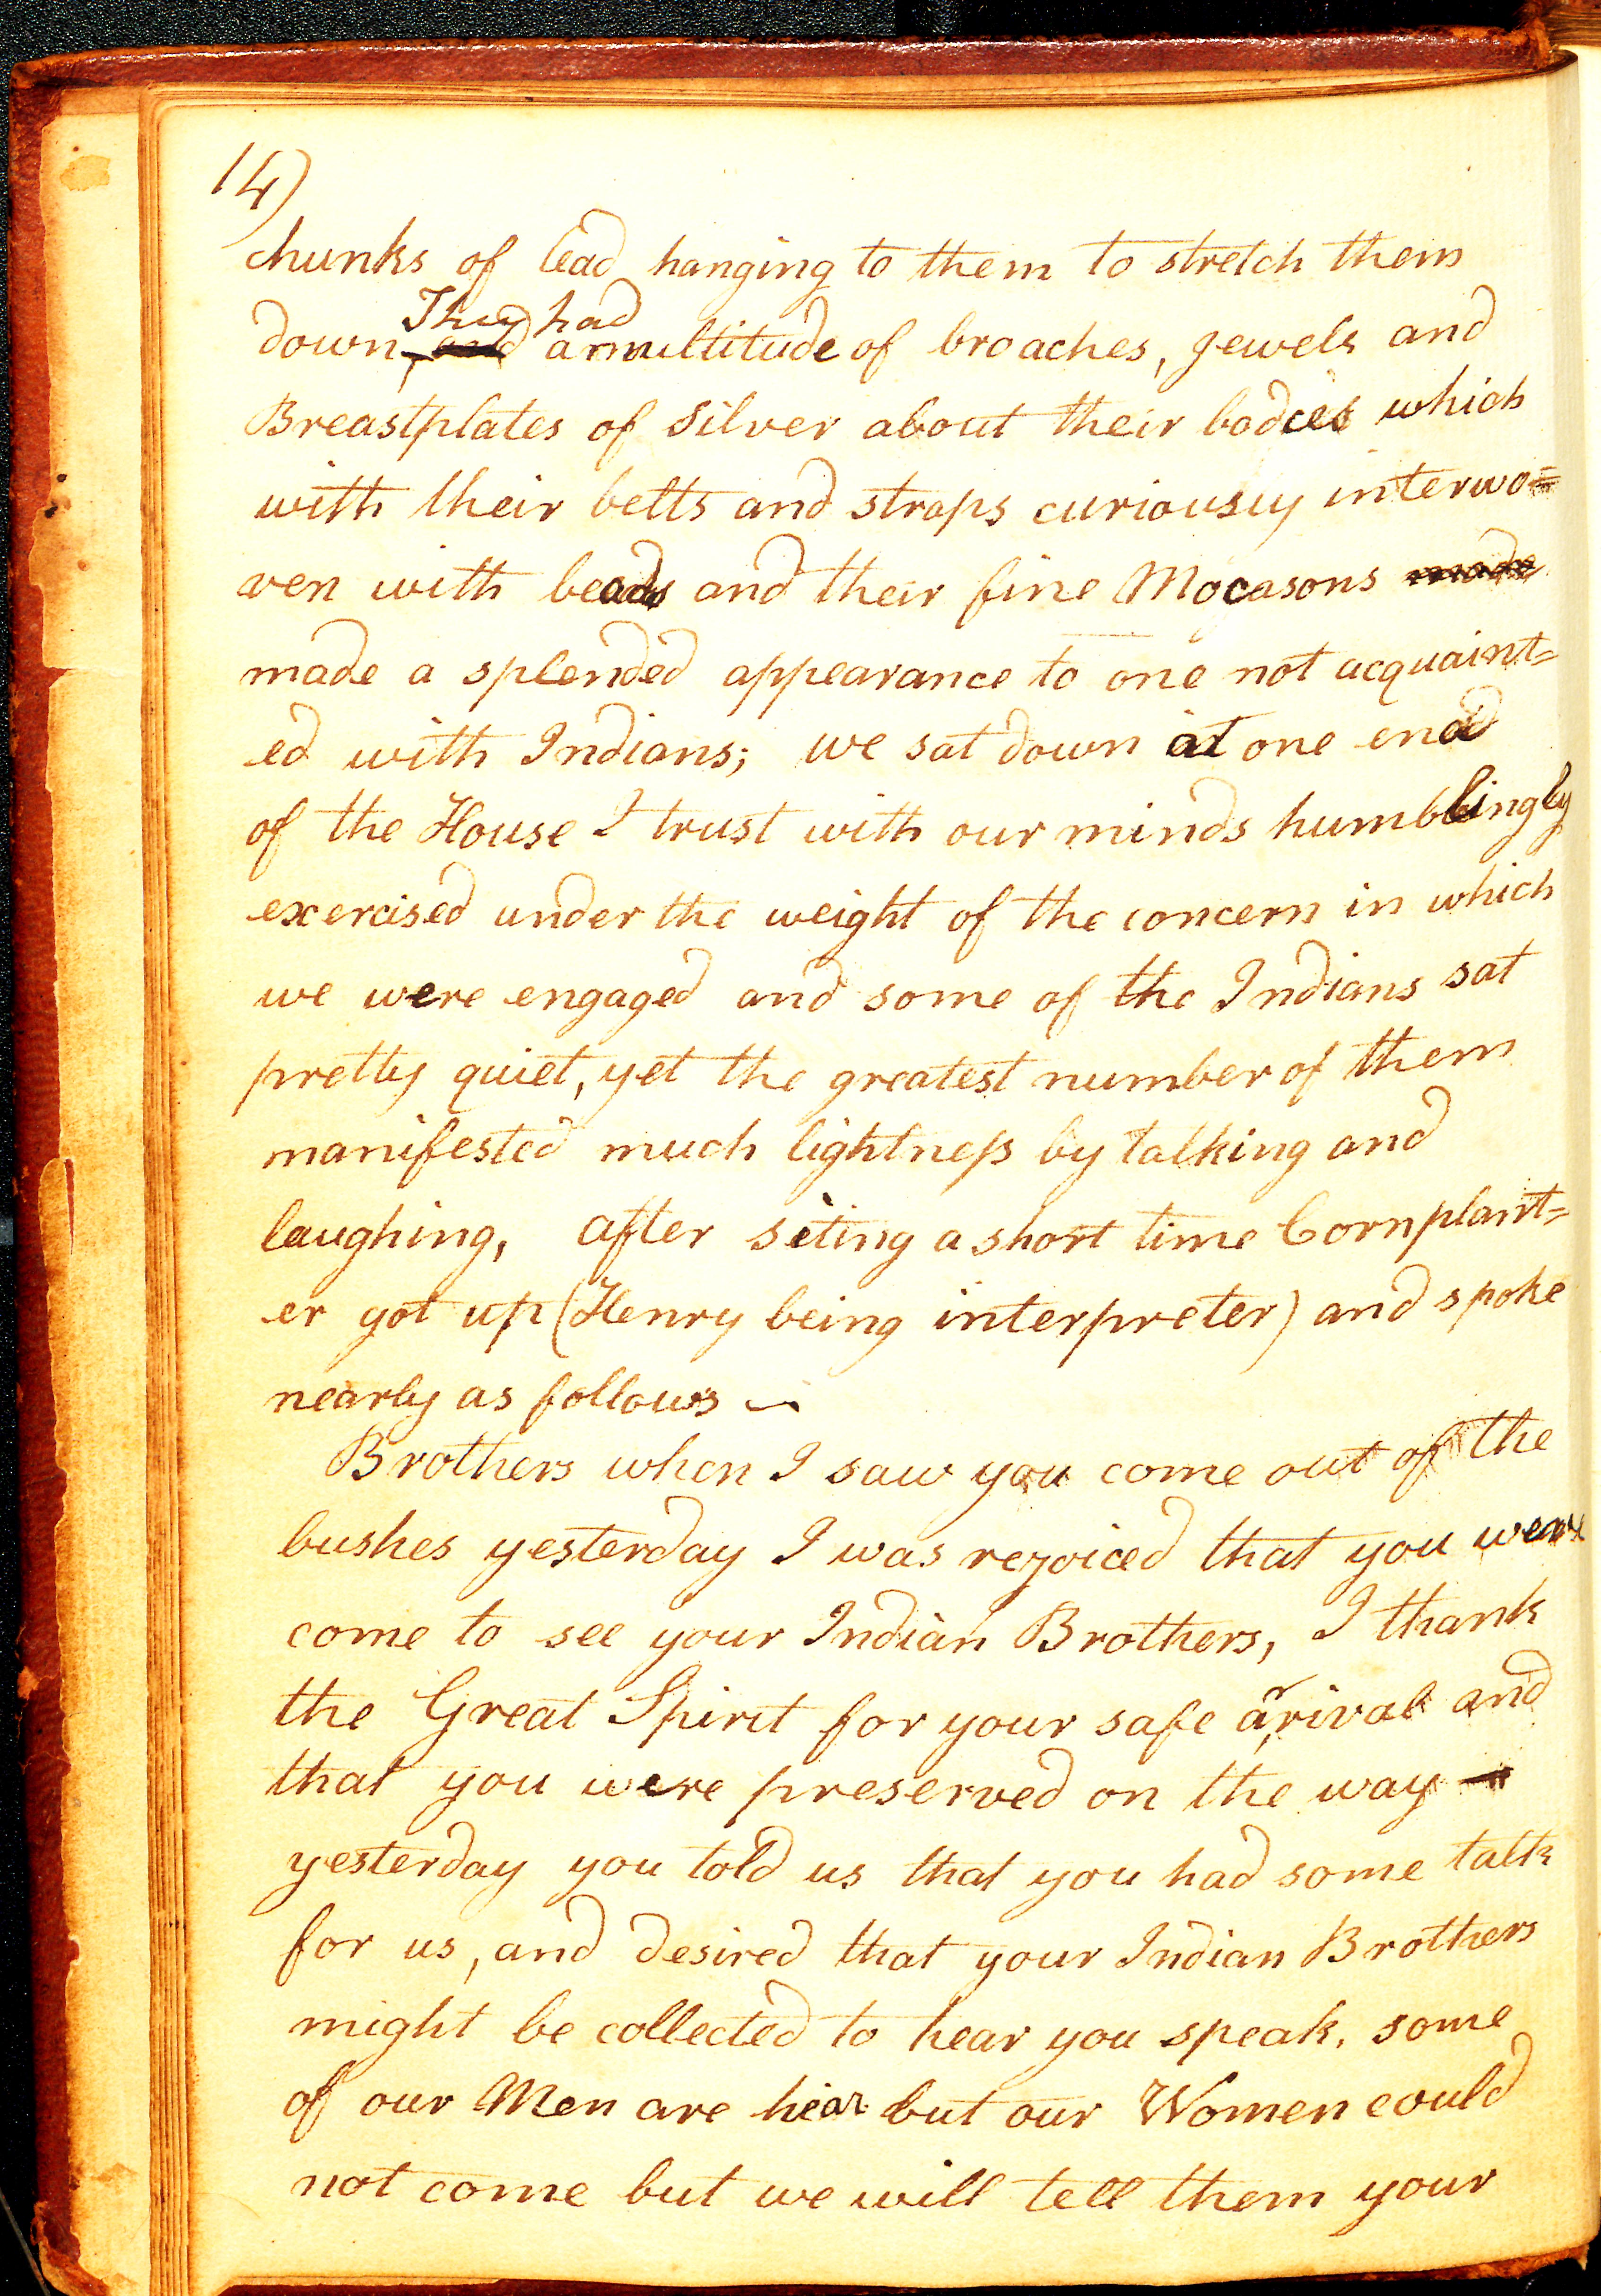 14)
chunks of lead hanging to them to stretch them
They had
down, and a multitude of broaches, jewels and
Breastplates of Silver about their bodies which
with their belts and straps curiousuy interwo=
ven with beads and their fine Mocasons made
made a splended appearance to one not acquaint=
ed with Indians; we sat down at one end
of the House I trust with our minds humblingly
exercised under the weight of the concern in which
we were engaged and some of the Indians sat
pretty quiet, yet the greatest number of them
manifested much lightneſs by talking and
laughing, after seting a short time Cornplant=
er got up (Henry being interpreter) and spoke
nearly as follows ~
Brothers when I saw you come out of the
bushes yesterday I was rejoiced that you were
come to see your Indian Brothers, I thank
the Great Spirit for your safe arrival and
that you were preserved on the way —
yesterday you told us that you had some talk
for us, and desired that your Indian Brothers
might be collected to hear you speak, some
of our Men are hear but our Women could
not come but we will tell them your